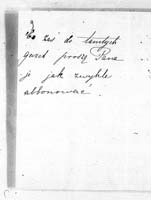 Co zaś do tamtych
gazet proszę Pana
je jak zwykle
abbonować.